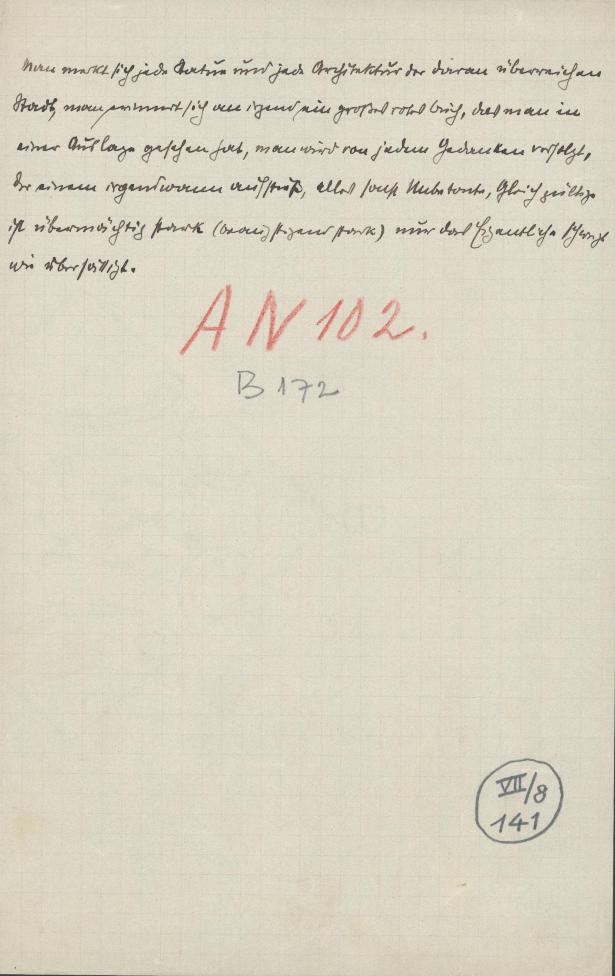 Man merkt sich jede Statue und jede Architektur der daran überreichen
Stadt, man erinnert sich an irgend ein großes rotes Buch, das man in
einer Auslage gesehen hat, man wird von jedem Gedanken verfolgt,
der einem irgendwann aufstieß, alles sonst Unbetonte, Gleichgültige
ist übermächtig stark (beängstigend stark) nur das Eigentliche schweigt
wie übersättigt.
AN 102.
B 172
VII/8
141